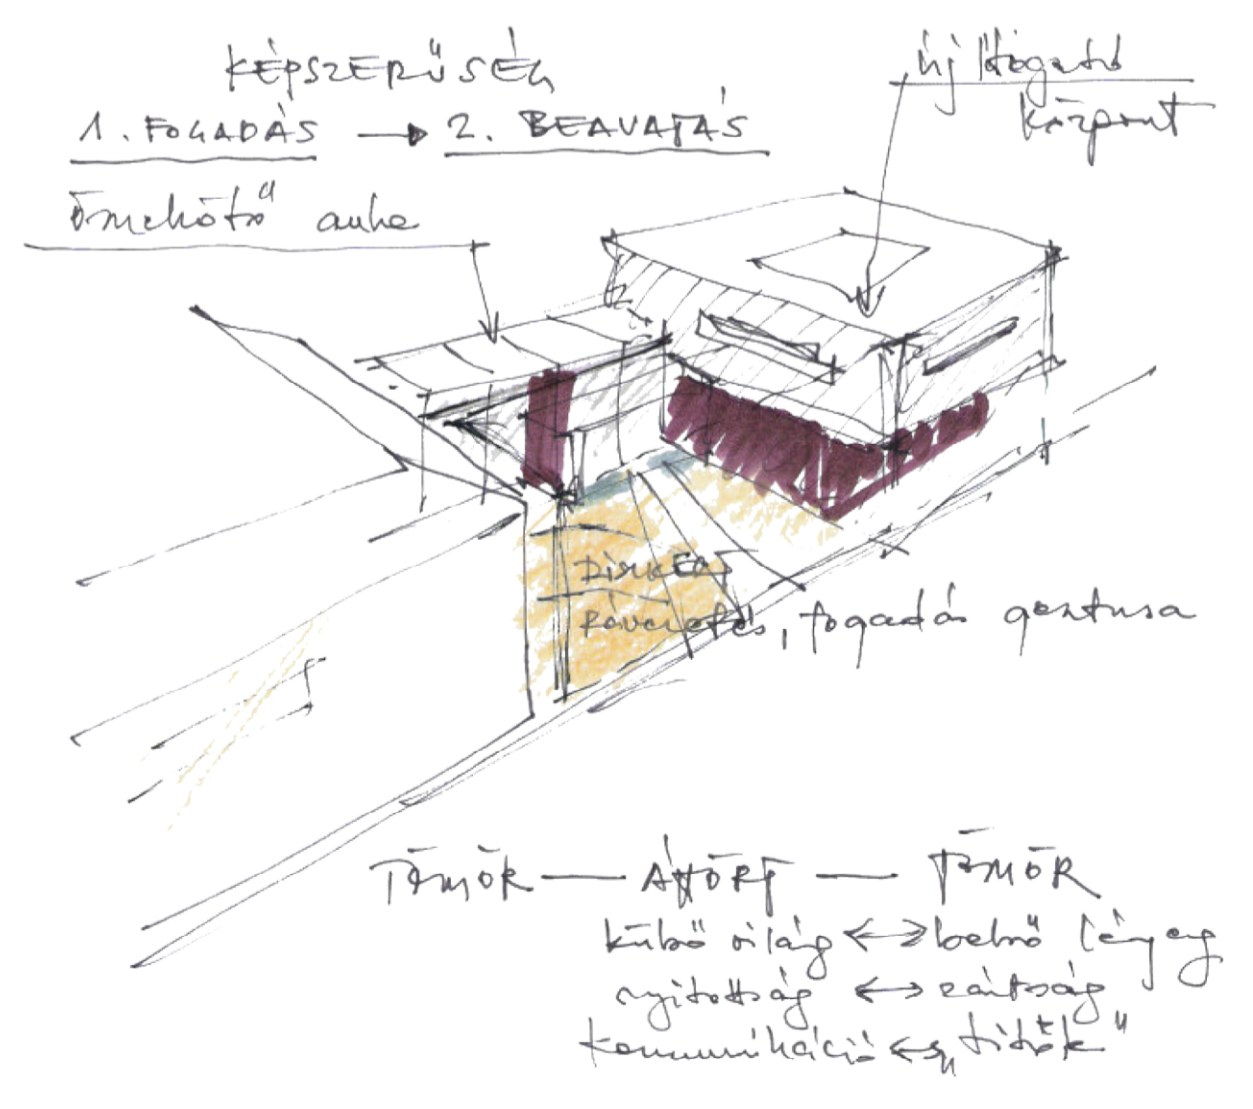 KÉPSZERŰSÉG
1. FOGADÁS → 2. BEAVATÁS
új látogató
központ
"
DIREKT
RÁVEZETÉS, fogadás gesztusa
TÖMÖR — ÁTTÖRT — TÖMÖR
külső világ ↔ belső lényeg
nyitottság ↔ zártság
kommunikáció ↔ „titok"